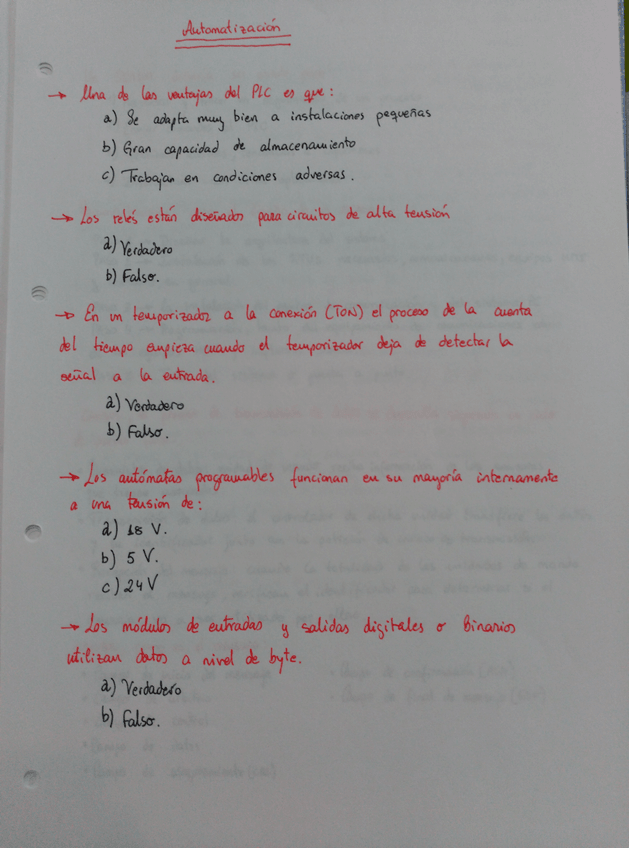 Automatización
→ Una de las ventajas del PLC es que:
a) Se adapta muy bien a instalaciones pequeñas
b) Gran capacidad de almacenamiento
c) Trabajan en condiciones adversas.
→ Los relés están diseñados para circuitos de alta tensión
a) Verdadero
b) Falso.
→ En un temporizador a la conexión (TON) el proceso de la cuenta
del tiempo empieza cuando el temporizador deja de detectar la
señal a la entrada.
a) Verdadero
b) Falso.
→ Los autómatas programables funcionan en su mayoría internamente
a una tensión de:
a) 18 V.
b) 5 V.
c) 24 V
→ Los módulos de entradas y salidas digitales o Binarios
utilizan datos a nivel de byte.
a) Verdadero
b) Falso.